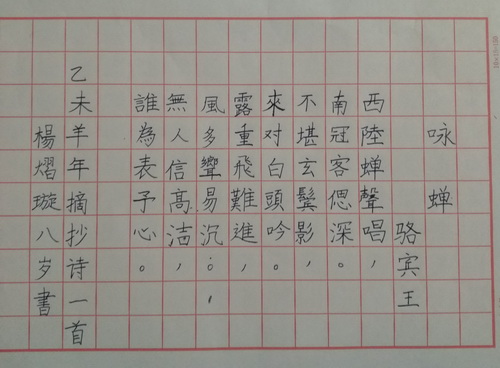 咏蝉
骆宾王
西陸蝉聲唱，
南冠客偲深。
不堪玄鬓影，
來对白頭吟。
露重飛難進，
風多響易沉：，
無人信高洁，
誰為表予心。
乙未羊年摘抄诗一首
楊熠璇八岁書